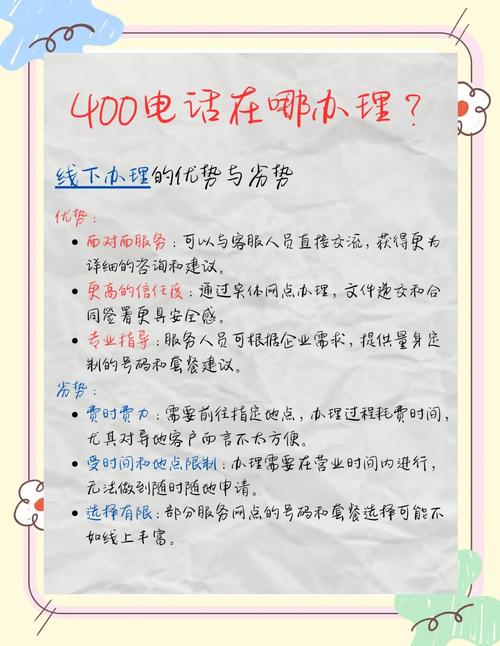 400电话在哪办理？
线下办理的优势与劣势
优势：
面对面服务：可以与客服人员直接交流，获得更为
详细的咨询和建议。
更高的信任度：通过实体网点办理，文件递交和合
同签署更具安全感。
专业指导：服务人员可根据企业需求，提供量身定
制的号码和套餐建议。
劣势：
费时费力：需要前往指定地点，办理过程耗费时间，
尤其对异地客户而言不太方便。
受时间和地点限制：办理需要在营业时间内进行，
无法做到随时随地申请。
选择有限：部分服务网点的号码和套餐选择可能不
如线上丰富。